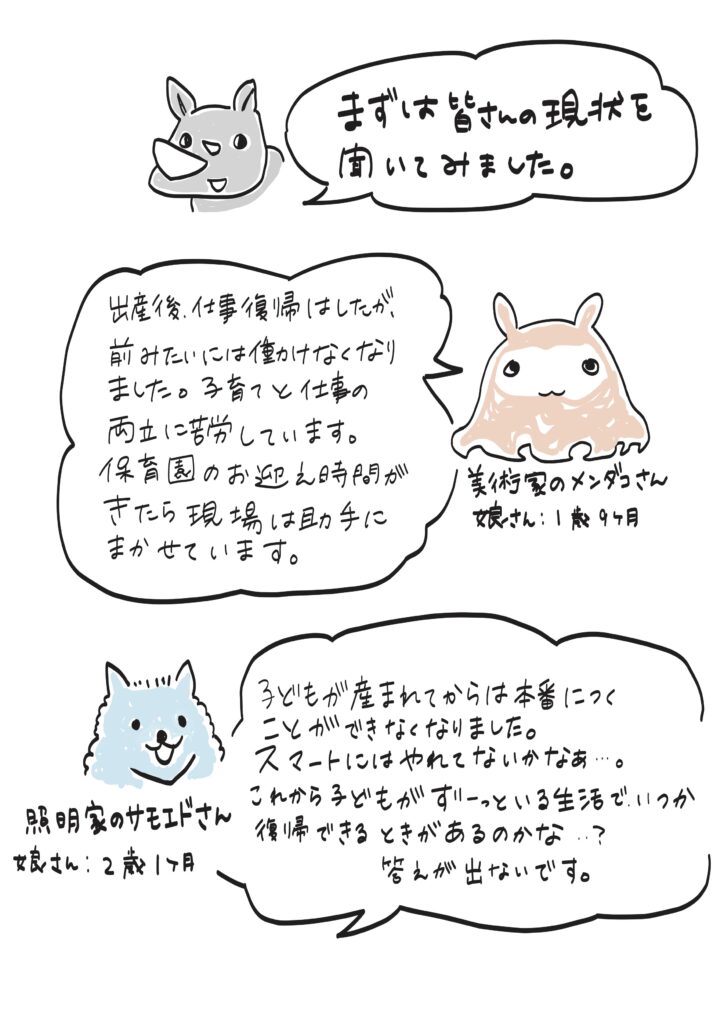 まずは皆さんの現状を
聞いてみました。
出産後、仕事復帰はしたが、
前みたいには働かけなくなり
ました。子育てと仕事の
両立に苦労しています。
保育園のお迎え時間が
きたら現場は助手に
まかせています。
美術家のメンダコさん
娘さん：1歳9ヶ月
子どもが産まれてからは本番につく
ことができなくなりました。
スマートにはやれてないかなぁ…。
これから子どもがずーっといる生活で、いつか
復帰できるときがあるのかな…？
答えが出ないです。
照明家のサモエドさん
娘さん：2歳1ヶ月